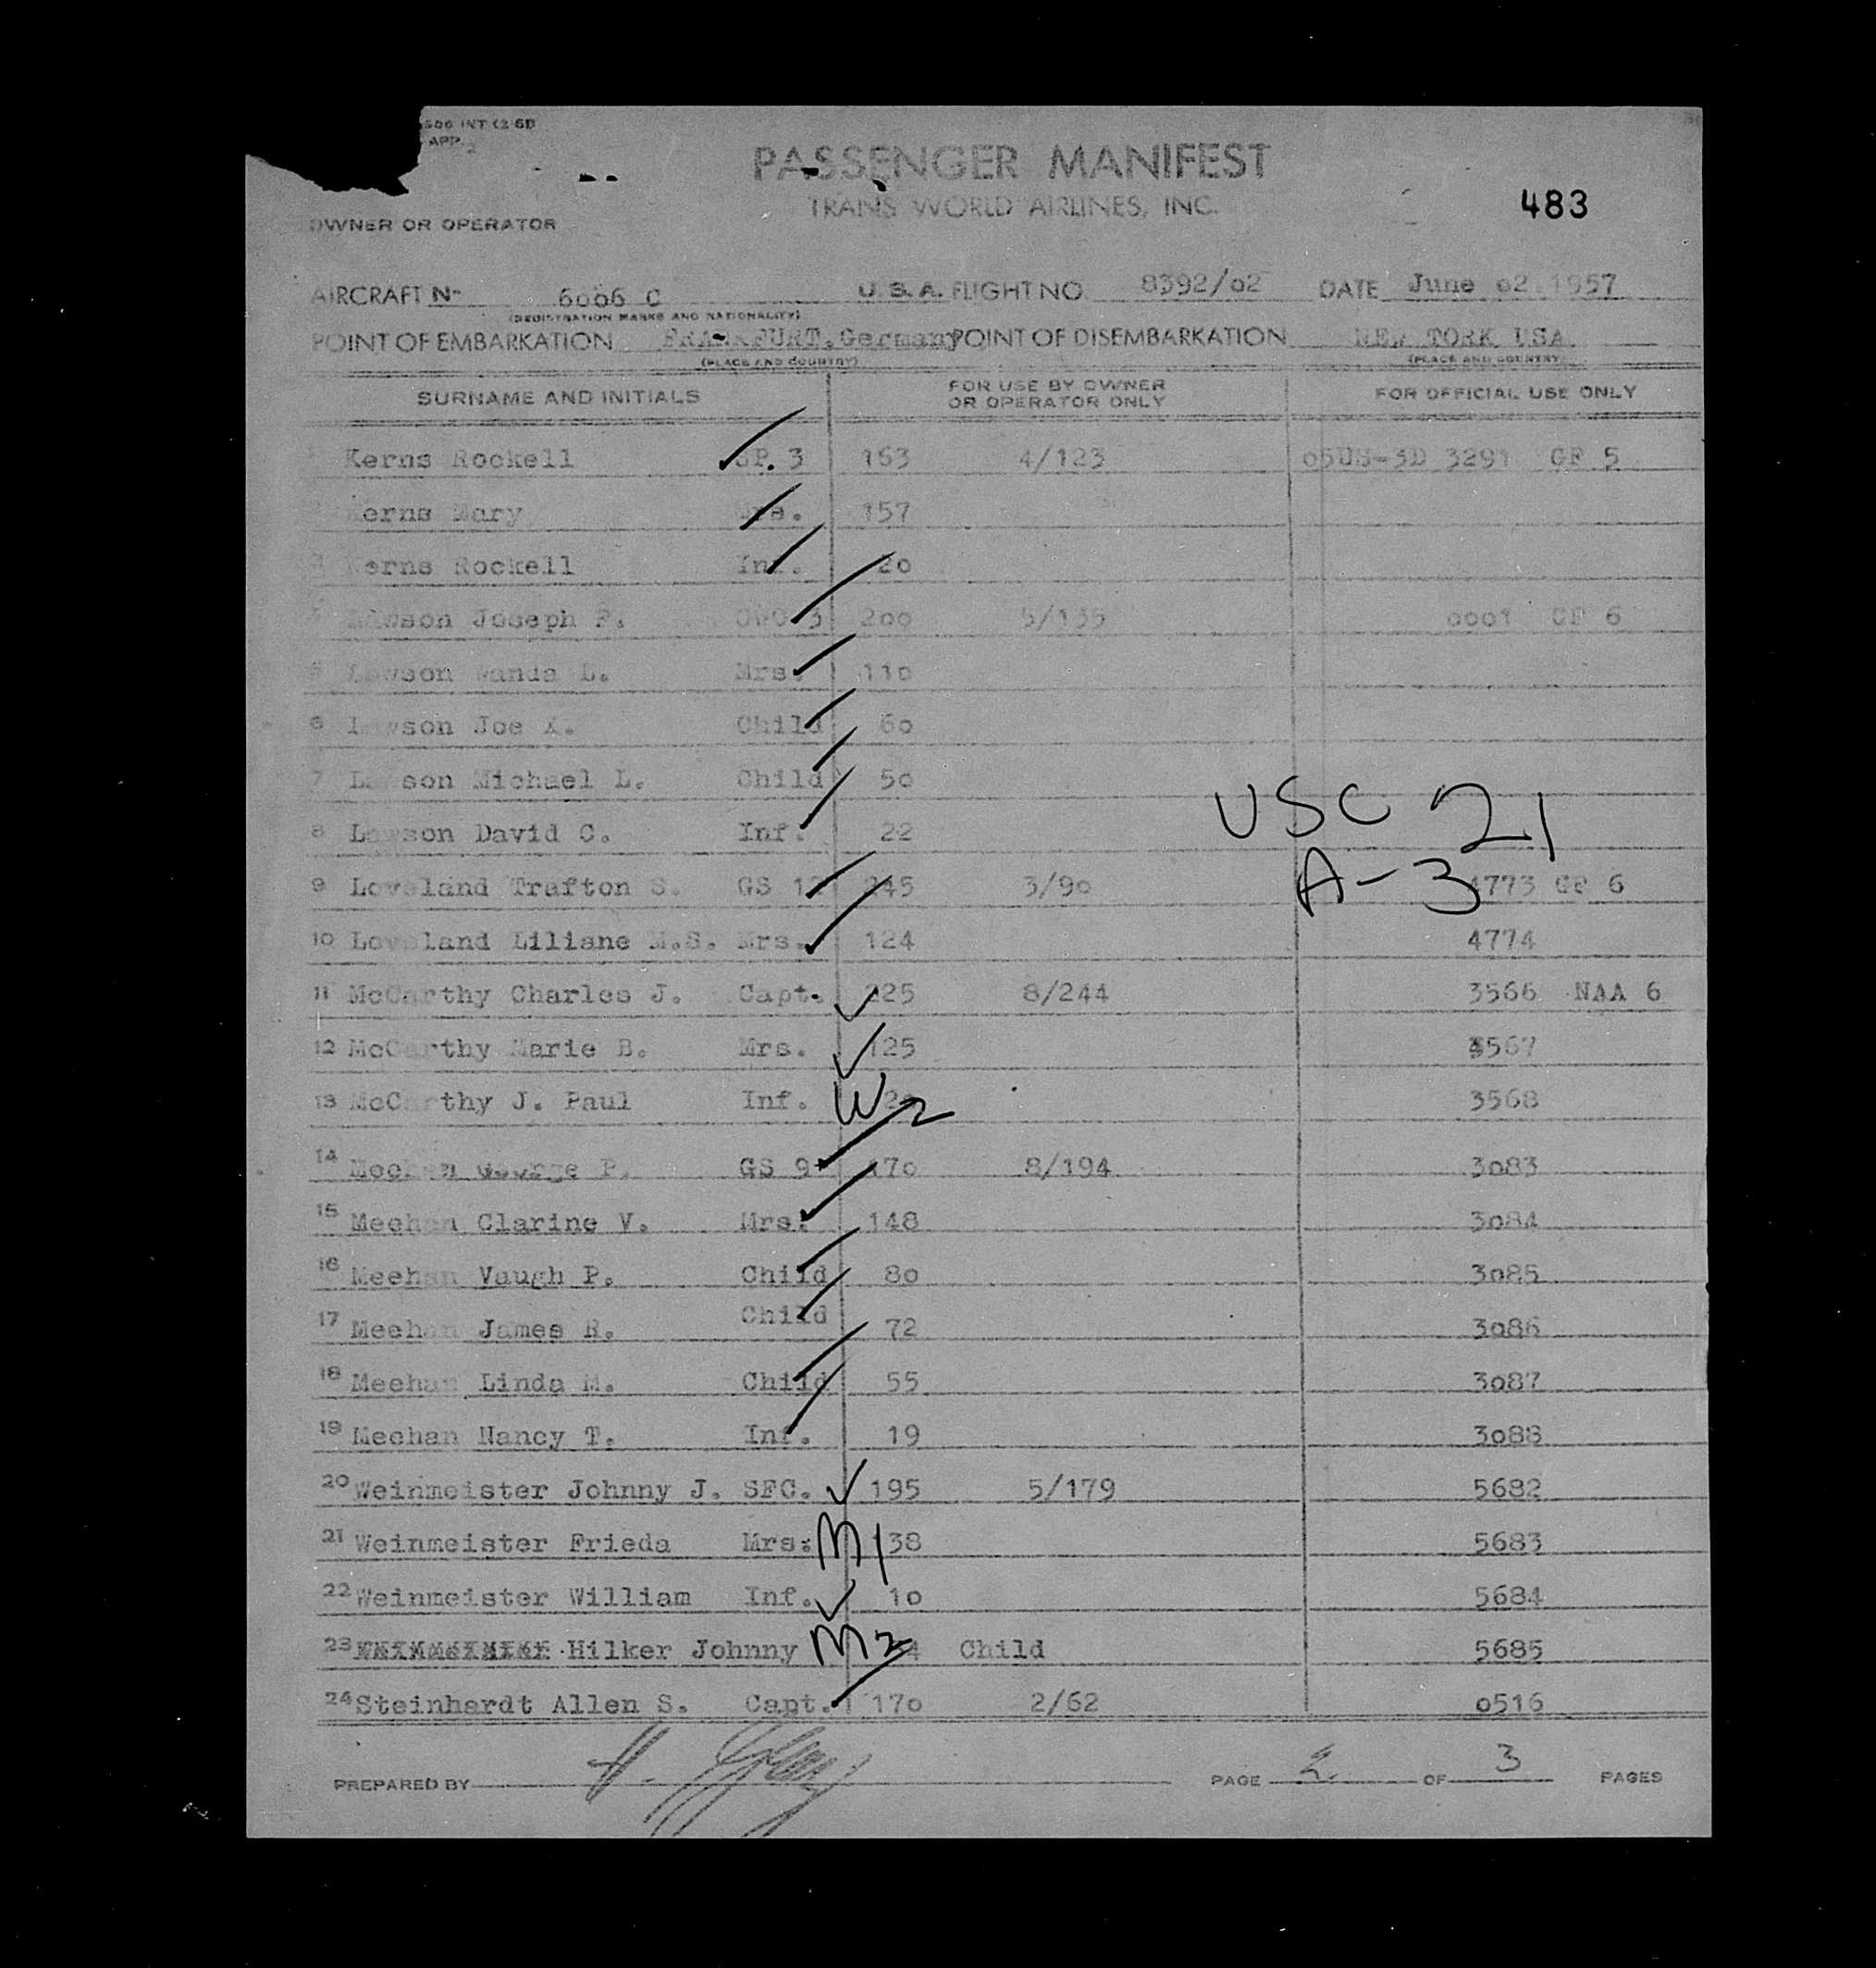 500 INT (2-61)
APP. 2
PASSENGER MANIFEST
TRANS WORLD AIRLINES, INC.
483
OWNER OR OPERATOR
AIRCRAFT N- 6006 C U.S.A. FLIGHT NO. 8392/o2 DATE June o2.1957
(REGISTRATION MARKS AND NATIONALITY)
POINT OF EMBARKATION FRANKFURT.Germany POINT OF DISEMBARKATION NEW TORK USA.
(PLACE AND COUNTRY) (PLACE AND COUNTRY)
SURNAME AND INITIALS FOR USE BY OWNER OR OPERATOR ONLY FOR OFFICIAL USE ONLY
1 Kerns Rockell SP. 3 163 4/123 o5US-3D 3291 GP 5
2 Kerns Mary Mrs. 157
3 Kerns Rockell Inf. 2o
4 Lawson Joseph F. 3 2oo 5/135 ooo1 GP 6
5 Lawson Wanda L. Mrs. 11o
6 Lawson Joe A. Child 6o
7 Lawson Michael L. Child 5o
USC 21
8 Lawson David C. Inf. 22
A-3
9 Loveland Trafton S. GS 12 245 3/9o 4773 GP 6
10 Loveland Liliane M.S. Mrs. 124 4774
11 McCarthy Charles J. Capt. 225 8/244 3566 NAA 6
12 McCarthy Marie B. Mrs. 125 3567
13 McCarthy J. Paul Inf. W2 3568
14 Meehan George P. GS 9 17o 8/194 3o83
15 Meehan Clarine V. Mrs. 148 3o84
16 Meehan Vaugh P. Child 8o 3o85
17 Meehan James R. Child 72 3o86
18 Meehan Linda M. Child 55 3o87
19 Meehan Nancy T. Inf. 19 3o88
20 Weinmeister Johnny J. SFC. 195 5/179 5682
21 Weinmeister Frieda Mrs. M1 138 5683
22 Weinmeister William Inf. 1o 5684
23 Hilker Johnny M2 Child 5685
24 Steinhardt Allen S. Capt. 17o 2/62 o516
PREPARED BY PAGE 2 OF 3 PAGES